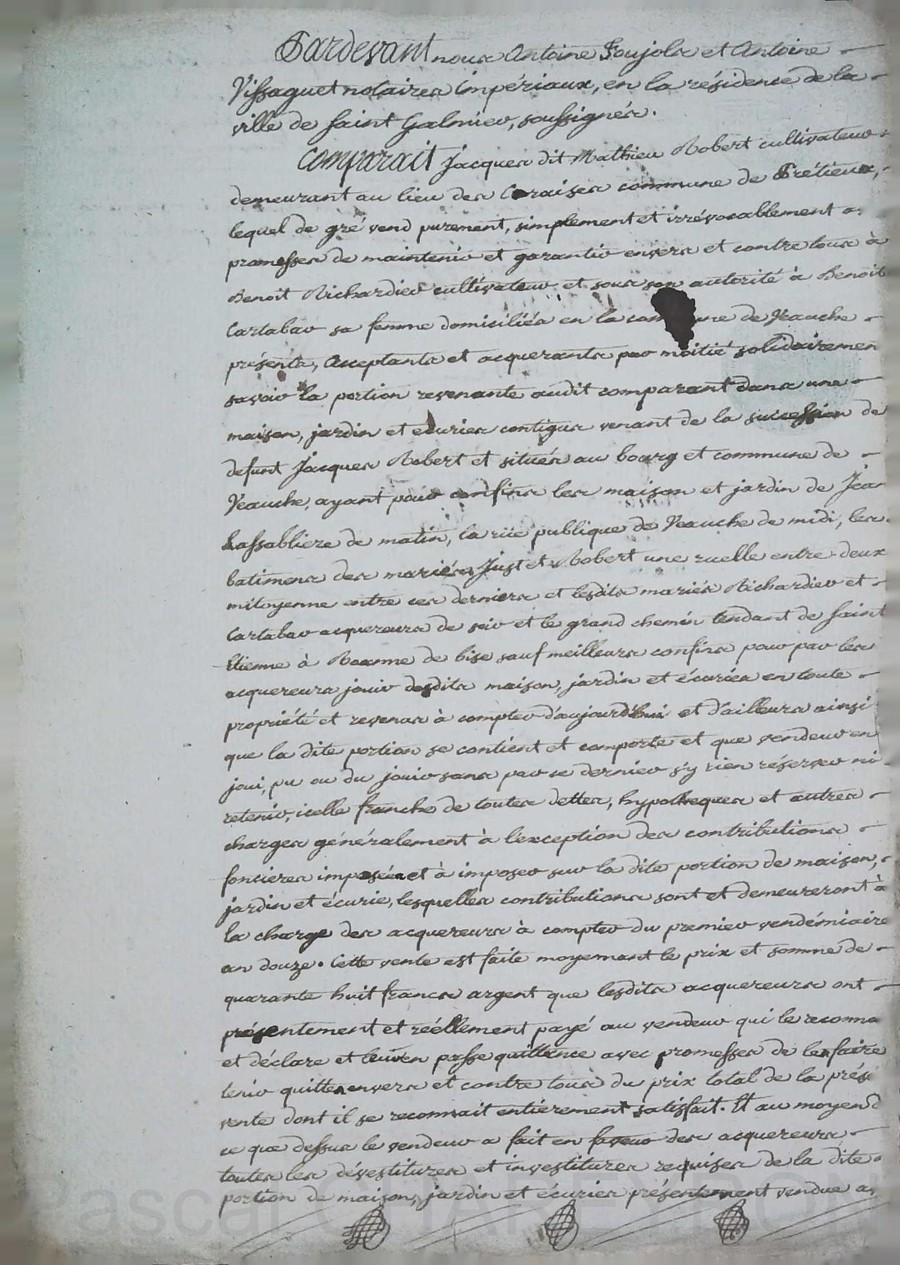 Pardevant nous Antoine Soujols et Antoine
Vissaguet notaires impériaux, en la résidence de la
ville de Saint Galmier, soussignés.
Comparait Jacques dit Mathieu Robert cultivateur
demeurant au lieu des commune de
lequel de gré vend purement, simplement et irrévocablement
promesses de maintenir et garantir envers et contre tous à
Benoit Richardier cultivateur et sous son autorité à Benoite
Cartabar sa femme domiciliés en la commune de Veauche
présents, acceptants et acquerants par moitié solidairement
savoir la portion revenante audit comparant dans une
maison, jardin et écuries contigus venant de la succession de
defunt Jacques Robert et situés au bourg et commune de
Veauche, ayant pour confins les maison et jardin de Jean
Lassabliere de matin, la rüe publique de Veauche de midi, les
batimens des mariés Just et Robert une ruelle entre deux
mitoyenne entre ces derniers et lesdits mariés Richardier et
Cartabar acquereurs de soir et le grand chemin tendant de Saint
Etienne à Roanne de bise sauf meilleurs confins pour par les
acquereurs jouir desdits maison, jardin et écuries en toute
propriété et revenus à compter d'aujourd'hui et d'ailleurs ainsi
que la dite portion se contient et comporte et que vendeur en
joui, pu ou du jouir sans par ce dernier s'y rien réserver ni
retenir, icelle franche de toutes dettes, hypotheques et autres
charges généralement à l'exception des contributions
foncieres imposées et à imposer sur la dite portion de maison,
jardin et écurie, lesquelles contributions sont et demeureront à
la charge des acquereurs à compter du premier vendémiaire
an douze. Cette vente est faite moyennant le prix et somme de
quarante huit francs argent que lesdits acquereurs ont
présentement et réellement payé au vendeur qui le reconna
et déclare et leur en passe quittance avec promesses de les faire
tenir quittes envers et contre tous du prix total de la prése
vente dont il se reconnait entièrement satisfait. Et au moyen d
ce que dessus le vendeur a fait en faveur des acquereurs
toutes les dévestitures et investitures requises de la dite
portion de maison, jardin et écuries présentement vendue a
Pascal CHAREYRON